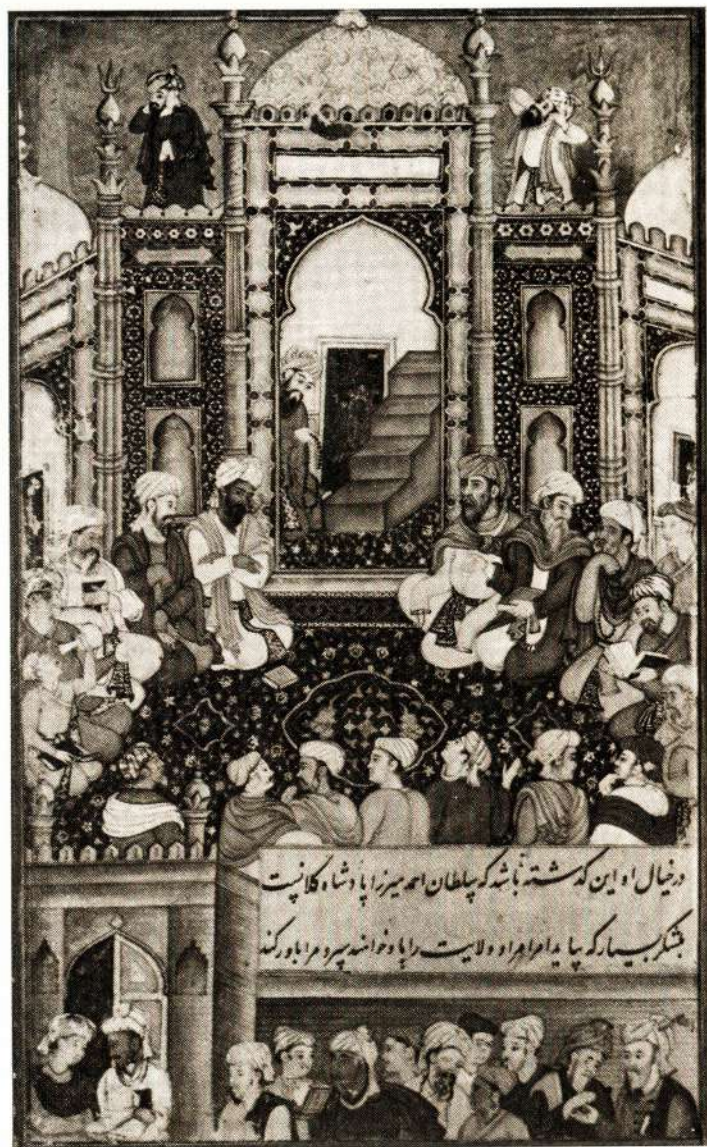 در خیال او این گذشته باشد که سلطان احمد میرزا پادشاه کلانیست
بلشکر بسیار که بیاید امرا مرا و ولایت را باو خواهند سپرد مرا باورکند